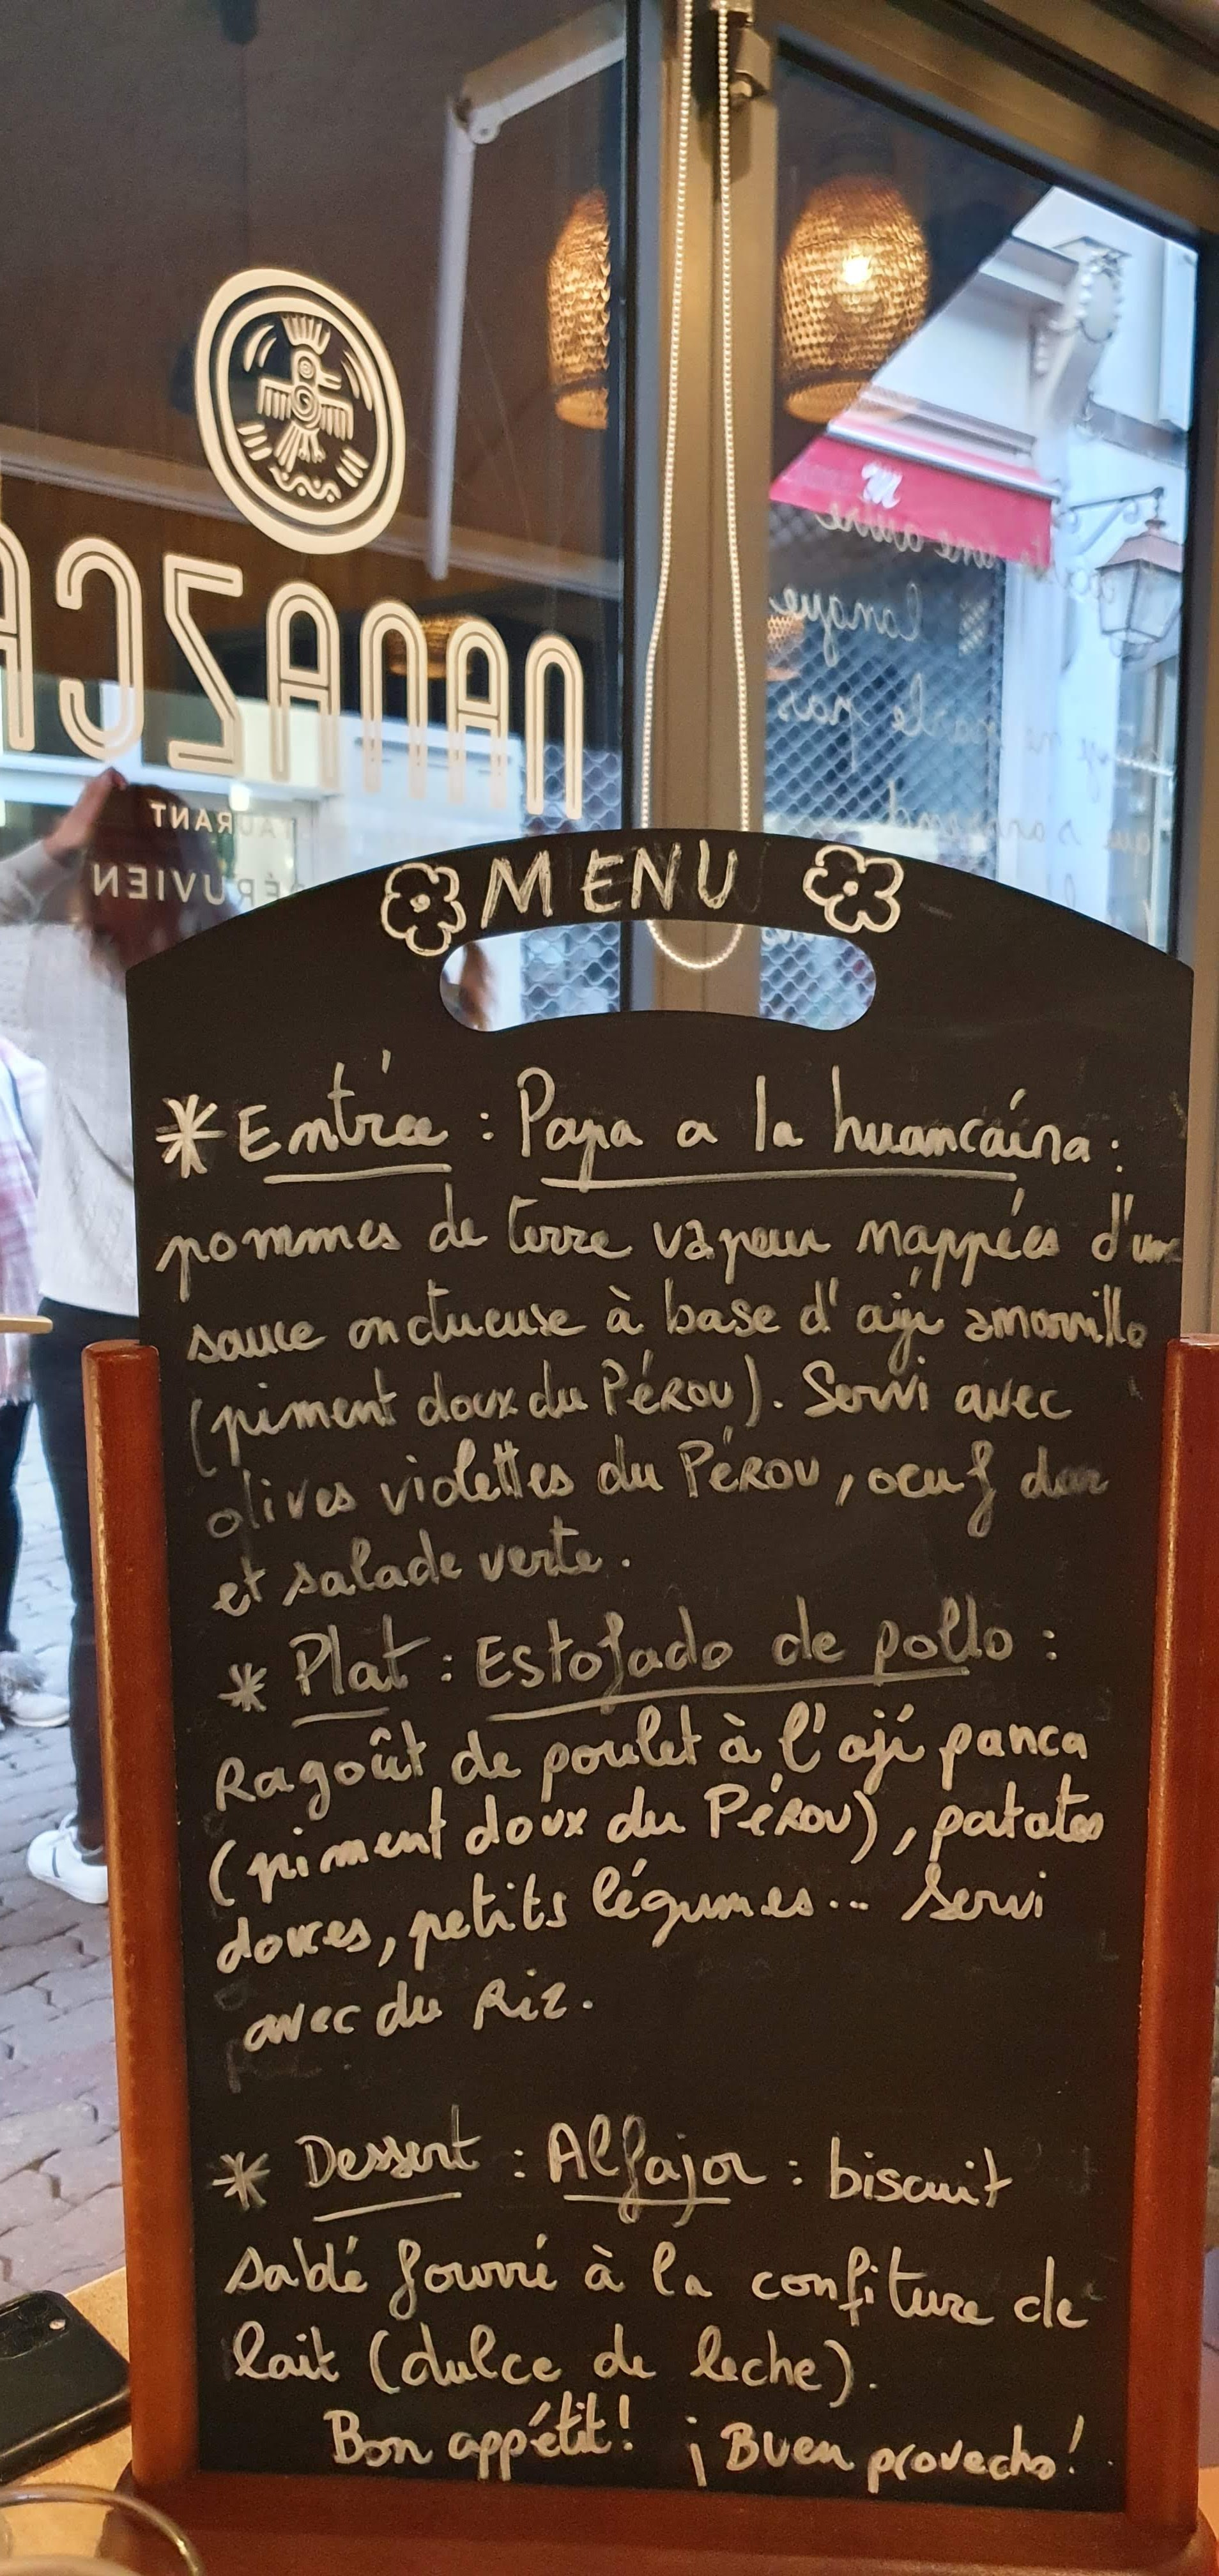 NANAZCA
RESTAURANT
PÉRUVIEN
MENU
* Entrée : Papa a la huancaína :
pommes de terre vapeur nappées d'une
sauce onctueuse à base d'aji amarillo
(piment doux du PÉROU). Servi avec
olives violettes du PÉROU, oeuf dur
et salade verte.
* Plat : Estofado de pollo :
Ragoût de poulet à l'ají panca
(piment doux du PÉROU), patates
douces, petits légumes... Servi
avec du Riz.
* Dessert : Alfajor : biscuit
sablé fourré à la confiture de
lait (dulce de leche).
Bon appétit! ¡Buen provecho!
une autre
langue
parle pas